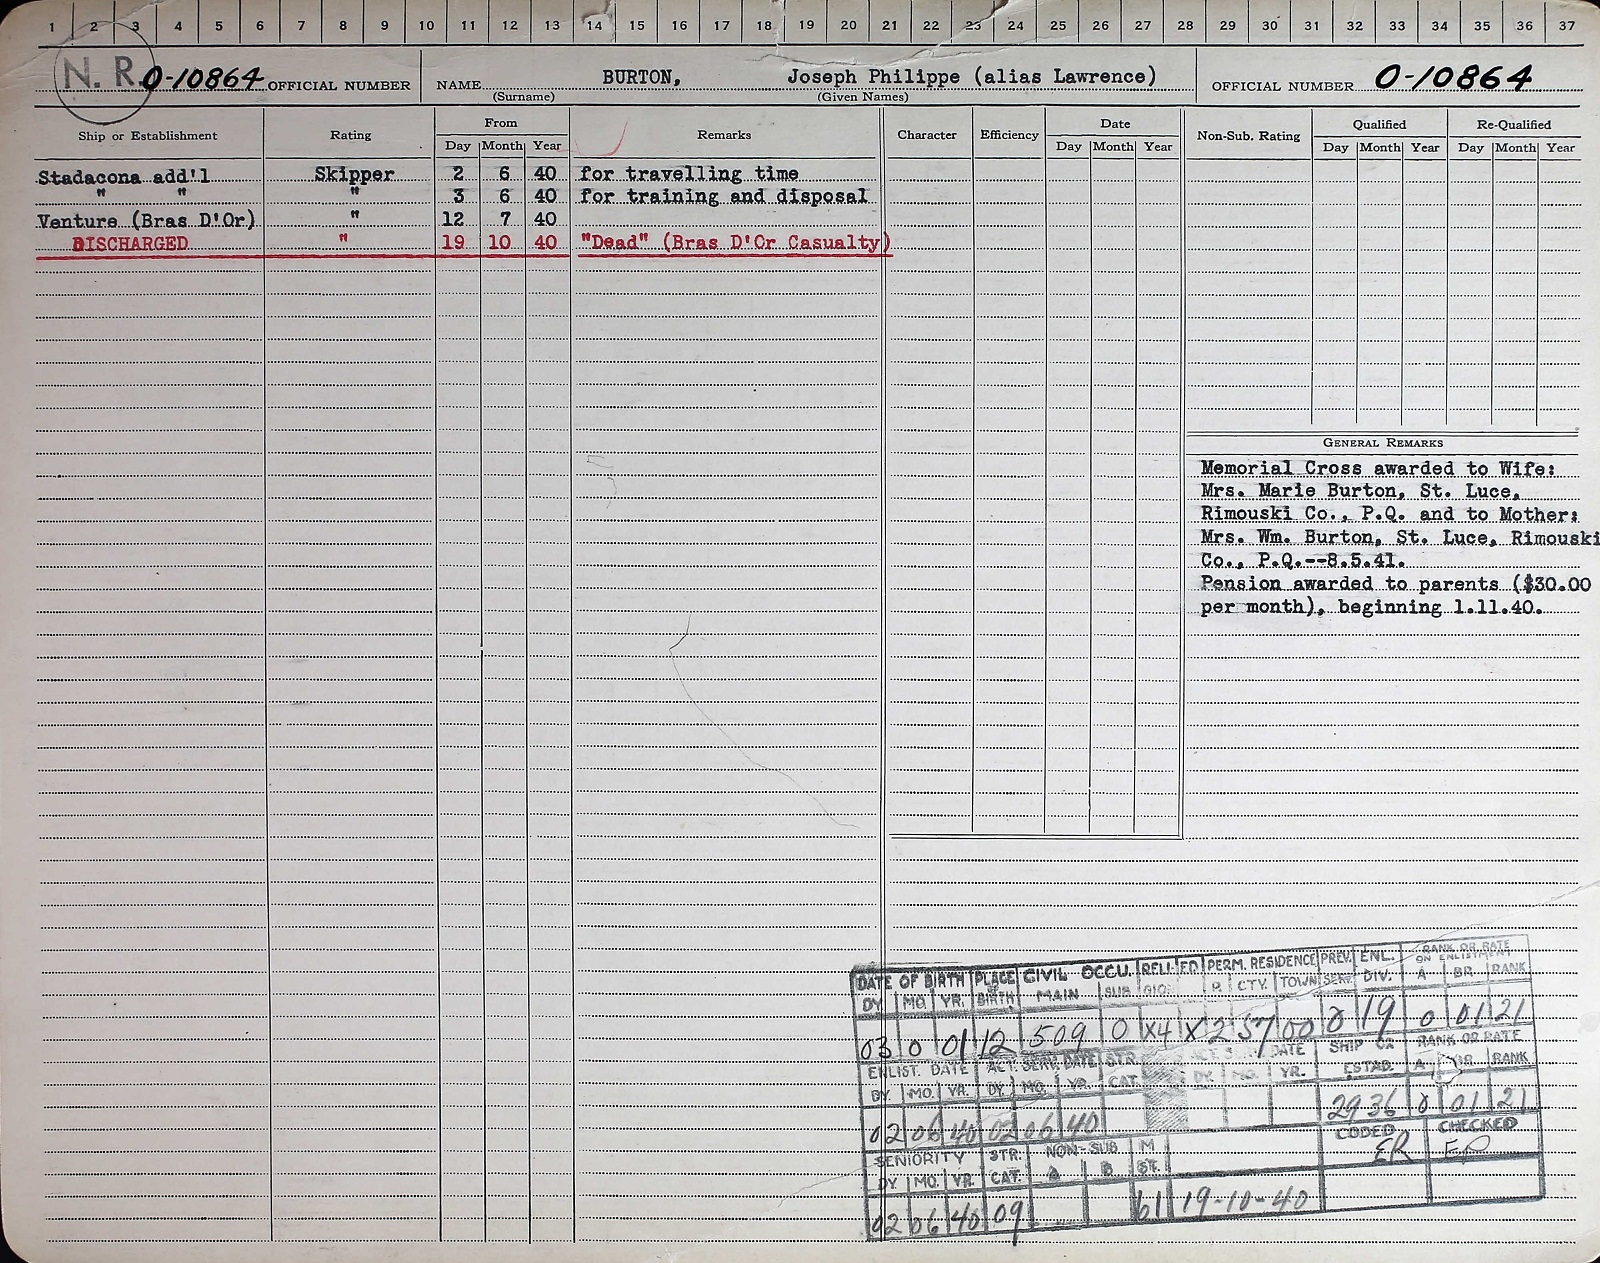 1 2 3 4 5 6 7 8 9 10 11 12 13 14 15 16 17 18 19 20 21 22 23 24 25 26 27 28 29 30 31 32 33 34 35 36 37
N. R. O-10864 OFFICIAL NUMBER NAME BURTON, Joseph Philippe (alias Lawrence) OFFICIAL NUMBER O-10864
(Surname) (Given Names)
Ship or Establishment Rating From Remarks Character Efficiency Date Non-Sub. Rating Qualified Re-Qualified
Day Month Year Day Month Year Day Month Year Day Month Year
Stadacona add'l Skipper 2 6 40 for travelling time
" " " 3 6 40 for training and disposal
Venture (Bras D'Or) " 12 7 40
DISCHARGED " 19 10 40 "Dead" (Bras D'Or Casualty)
GENERAL REMARKS
Memorial Cross awarded to Wife:
Mrs. Marie Burton, St. Luce,
Rimouski Co., P.Q. and to Mother:
Mrs. Wm. Burton, St. Luce, Rimouski
Co., P.Q.--8.5.41.
Pension awarded to parents ($30.00
per month), beginning 1.11.40.
DATE OF BIRTH PLACE OF BIRTH CIVIL OCCU. RELIGIO ED PERM. RESIDENCE PREV. SERV. ENL. DIV. RANK OR RATE ON ENLISTMENT
DY MO. YR. MAIN SUB P. CTY. TOWN A BR. RANK
03 0 01 12 509 0 X4 X 2 57 00 0 19 0 01 21
ENLIST. DATE ACT. SERV. DATE STR. CAT. DATE SHIP OR ESTAB. RANK OR RATE
DY. MO. YR. DY. MO. YR. DY. MO. YR. A BR. RANK
02 06 40 02 06 40 2936 0 01 21
SENIORITY STR. CAT. NON-SUB M ST. CODED ER CHECKED
DY MO. YR. A B
02 06 40 09 61 19-10-40